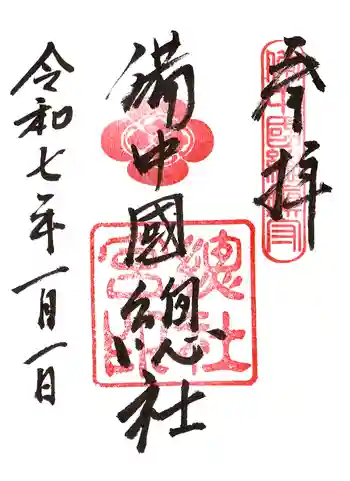 参拝
備中國總社
令和七年一月一日
總社
宮印